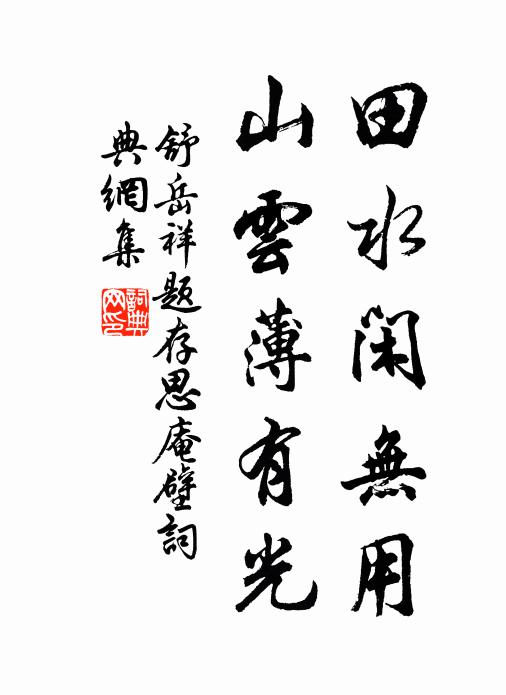 田水闲無用
山雲薄有光
舒岳祥题存思庵壁詞
典網集
詞典网印